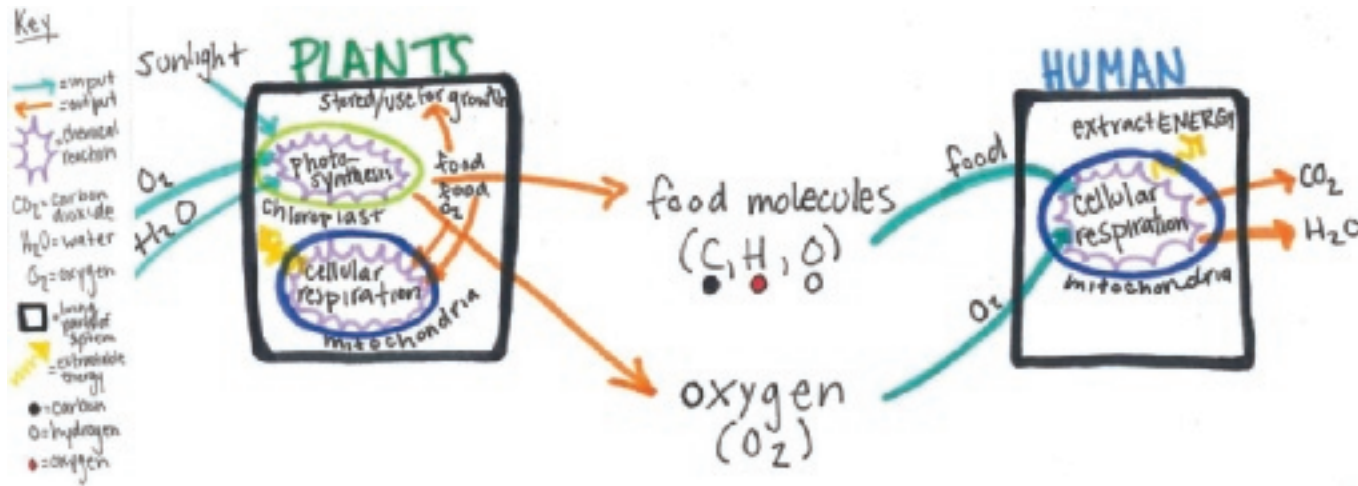 Key
= input
= output
= chemical
reaction
CO₂ = carbon
dioxide
H₂O = water
O₂ = oxygen
= living
parts of
system
= extractable
energy
= carbon
O = hydrogen
= oxygen
Sunlight
O₂
H₂O
PLANTS
stored/use for growth
photo-
synthesis
chloroplast
food
food
O₂
cellular
respiration
mitochondria
food molecules
(C, H, O)
oxygen
(O₂)
food
O₂
HUMAN
extract ENERGY
cellular
respiration
mitochondria
CO₂
H₂O